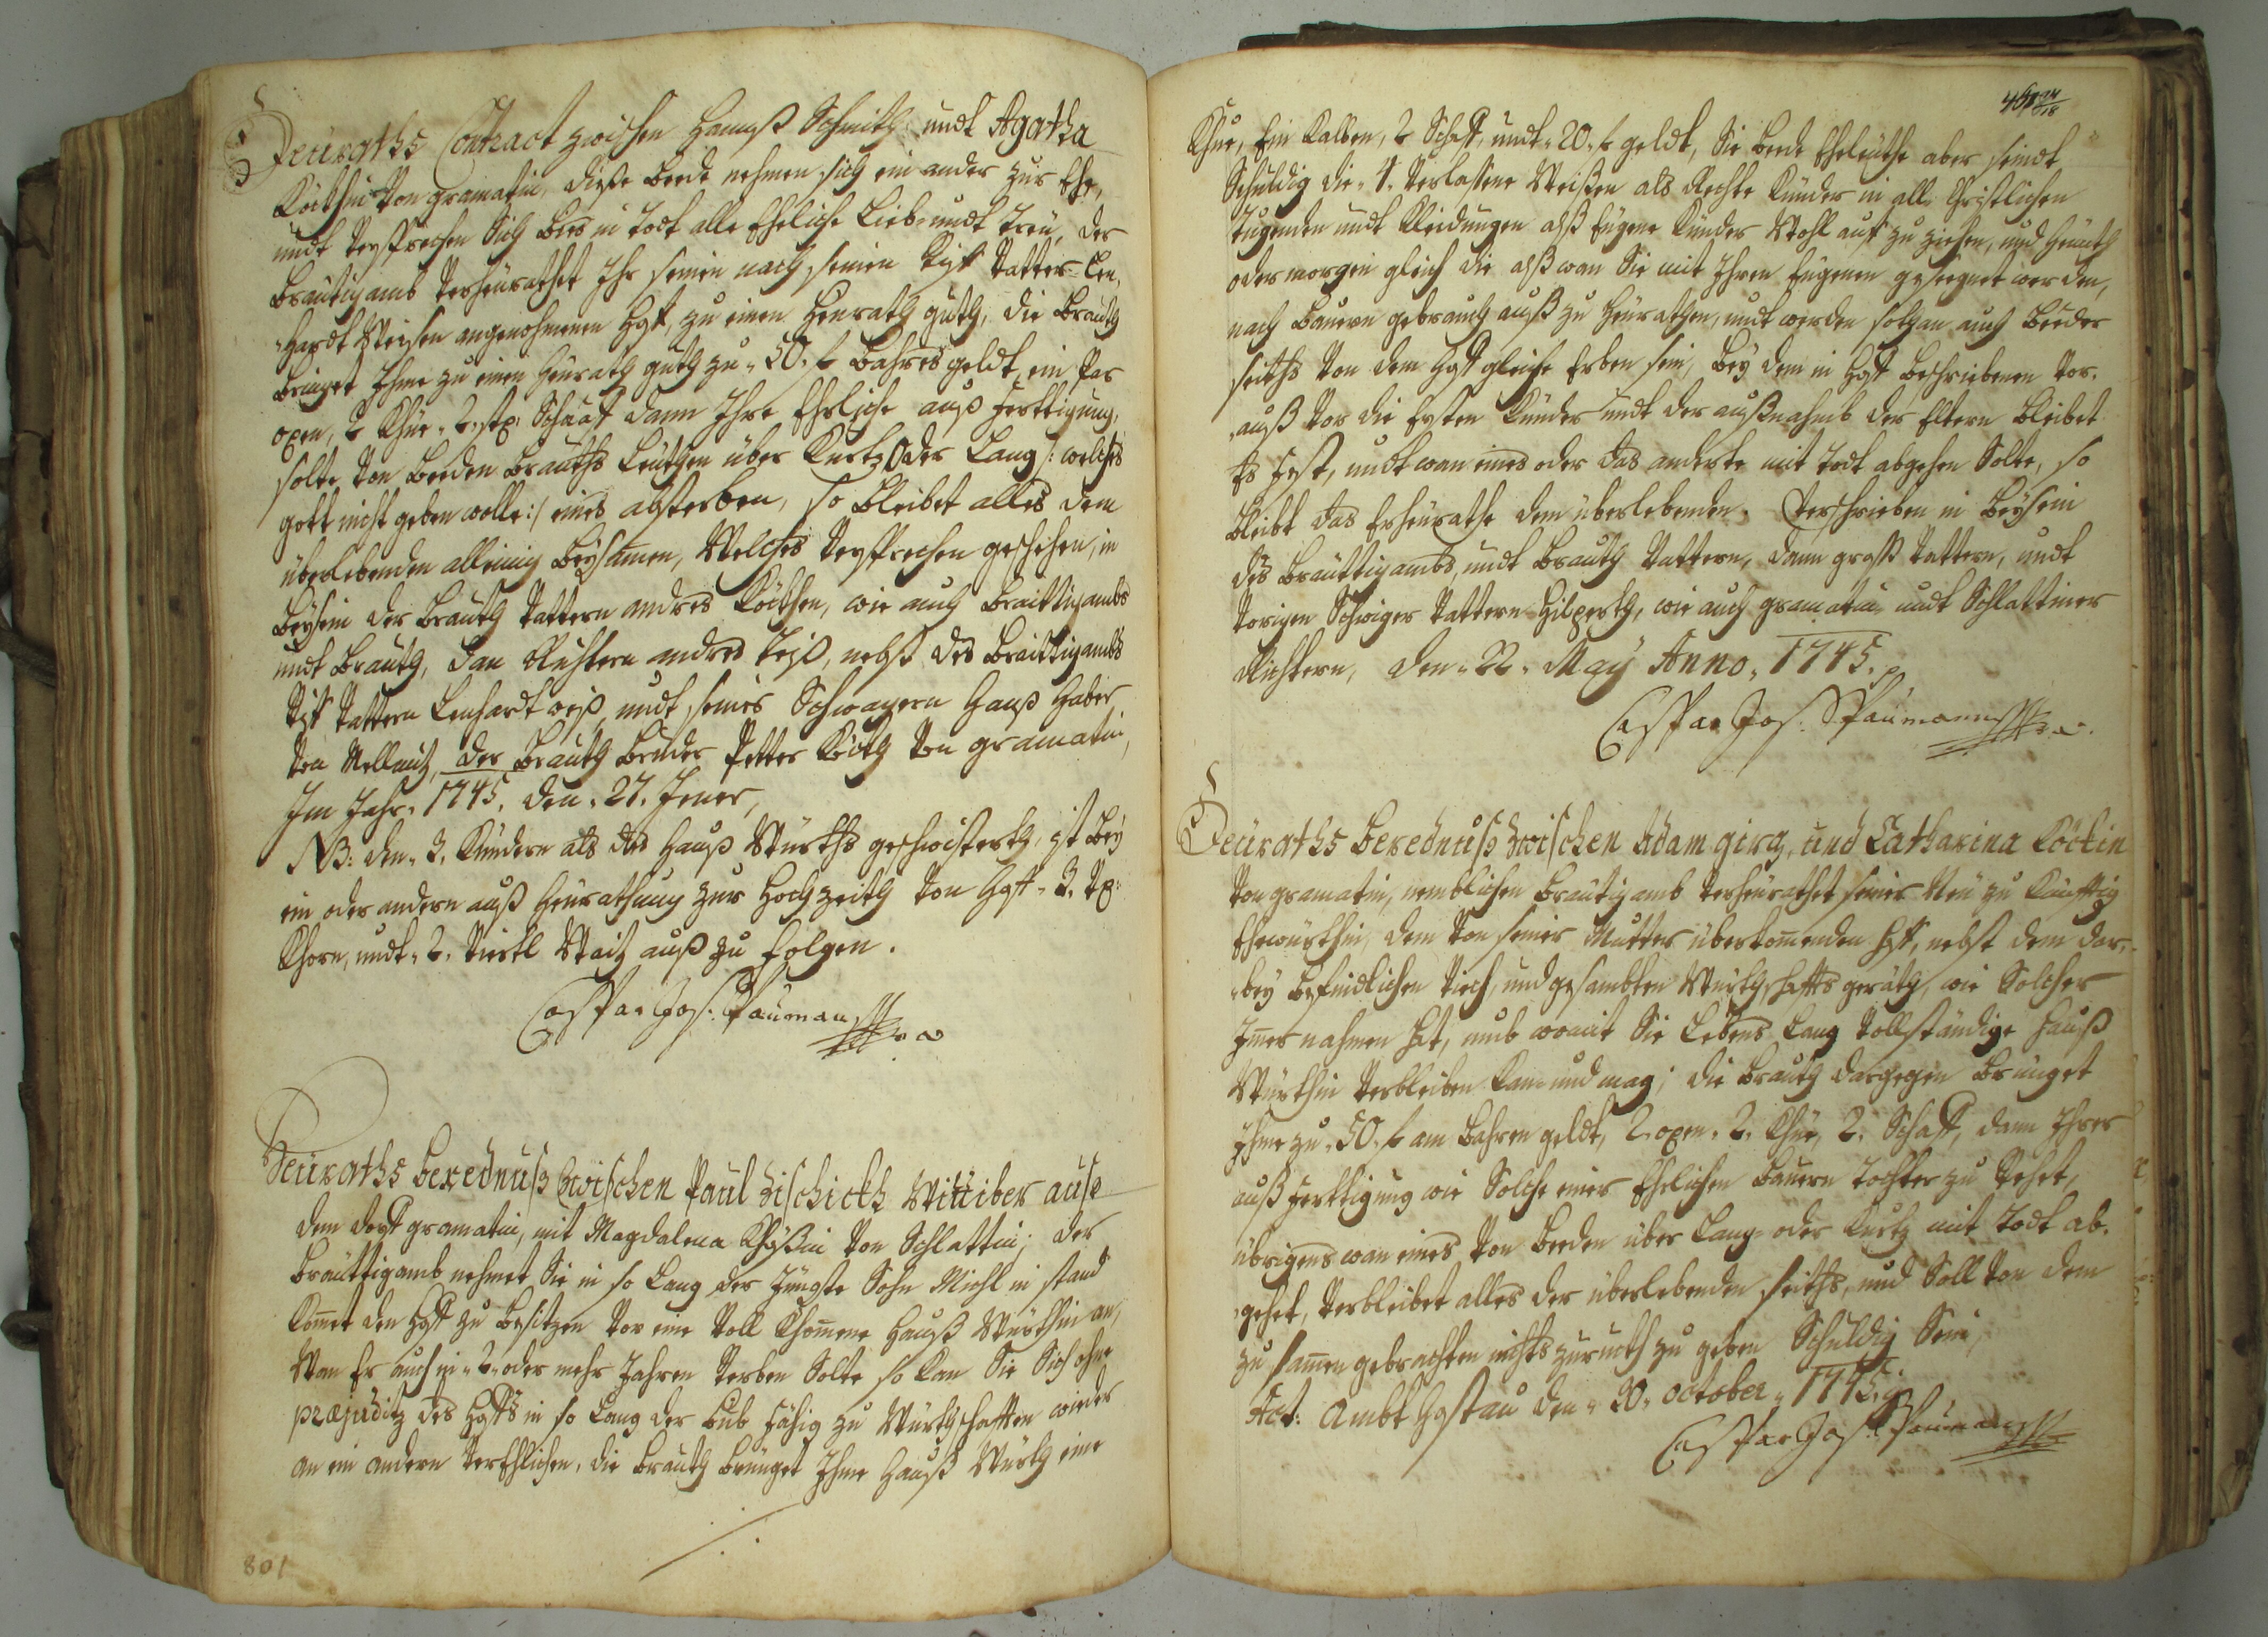 Heuraths Contract zwischen Hannß Schmith, undt Agatha
Köckhin von gramatin, diese beede nehmen sich ein ander zur Ehe,
undt versprechen sich bies in Todt alle Eheliche Lieb- undt Treu, der
Bräutigamb verheurathet Ihr seinen nach seinen Vatter Len-
hardt angenohmenen Hoff, zu einen Heurath guth, die Brauth
bringet Ihme zu einen Heurath guth zu 50. f bahres geldt, ein Par
oxen, 2 Khüe, 2 Schaaf dann Ihre Ehrliche auß ferttigung,
solte von beeden brauths Leuthen über Kurtz oder Lang /: welches
gott nicht geben wolle :/ eines absterben, so bleibet alles dem
überlebenden alleinig beysamen, Welches versprechen geschehen, in
beysein der brauth Vattern andres Köckhen, wie auch Breittigambs
undt Brauth, dan Richtern andres, nebst des Breittigambs
Vattern Lenhardt undt seines Schwagern Hanß Haber
von Mellnitz, der Brauth bruder Petter Köckh von gramatin,
Im Jahr 1745. den 27. Jener,
NB: den 3. Kündern als des Hauß Würths geschwisterth, ist bey
ein oder andern auß Heurathung zur Hochzeith von Hoff 3.
Khorn, undt 2. viertl Waitz auß zu folgen.
Caspar Jos: Paüman
Heuraths berednuß zwischen Paul Zischickh Wittiber auß
dem dorff gramatin, mit Magdalena von Schlattin; der
Bräuttigamb nehmet Sie in so Lang der Jüngste Sohn Michl in stand
Komet den Hoff zu besitzen vor eine Voll Khomene Hauß Würthin an,
Wan Er auch in 2 oder mehr Jahren sterben Solte so kan Sie Sich ohne
præjuditz des Hoffs in so Lang der bub fähig zu Würthschafften wieder
an ein andern verEhlichen, die brauth bringet Ihme Hauß Würth eine
801
Khue, Ein Kalben, 2 Schaff, undt 20. f geldt, Sie beede Eheleuthe aber seindt
Schuldig die 4. verlassene Weißen als Rechte Künder in alle Christlichen
Tugenden undt Kleidungen alß Eugene Künder Wohl auf zu ziehen, und heunth
oder morgen gleich die alß wan Sie mit Ihren Eugenen gesegnet werden,
nach bauern gebrauch auß zu heurathen, undt werden solchen auch beeder
seiths von dem Hoff gleiche Erben sein, bey dem in Hoff beschriebenen vor-
auß vor die Ersten Künder undt der außnahmb der Eltern bleibet
Es fest, undt wan eines oder das anderte mit Todt abgehen Solte, so
bleibt das Erheurathe dem überlebenden. Verschrieben in Beysein
des Bräuttigambs, undt Brauth Vattern, dann groß Vattern, undt
vorigen Schwiger Vattern Hilperth, wie auch gramatin- undt Schlattiner
Richtern, den 22. May Anno 1745.
Caspar Jos: Paümann
Heuraths berednuß zwischen Adam girg, und Catharina Köckin
von gramatin, nemblichen Bräutigamb verheurathet seiner Neu zu Künfftig
Ehewürthin, dem von seiner Mutter überkomenden Hoff, nebst dem dar-
bey befindlichen Viech, und gesambten Würthschaffts geräth, wie Solcher
Imer nahmen hat, umb womit Sie Lebens Lang Vollständige Hauß
Würthin verbleiben kan und mag; die Brauth dargegen bringet
Ihme zu 50. f am bahren geldt, 2. oxen, 2. Khüe, 2. Schaff, dann Ihrer
auß ferttigung wie Solche einer Ehrlichen bauern Tochter zu stehet,
übrigens wan eines von beeden über Lang- oder Kurtz mit Todt ab-
gehet, verbleibet alles der überlebenden seiths, und Soll von dem
zu samen gebrachten nichts zuruckh zu geben Schuldig Sein,
Act: Ambt Hostau den 30. october 1745.
Caspar Jos: Paüman